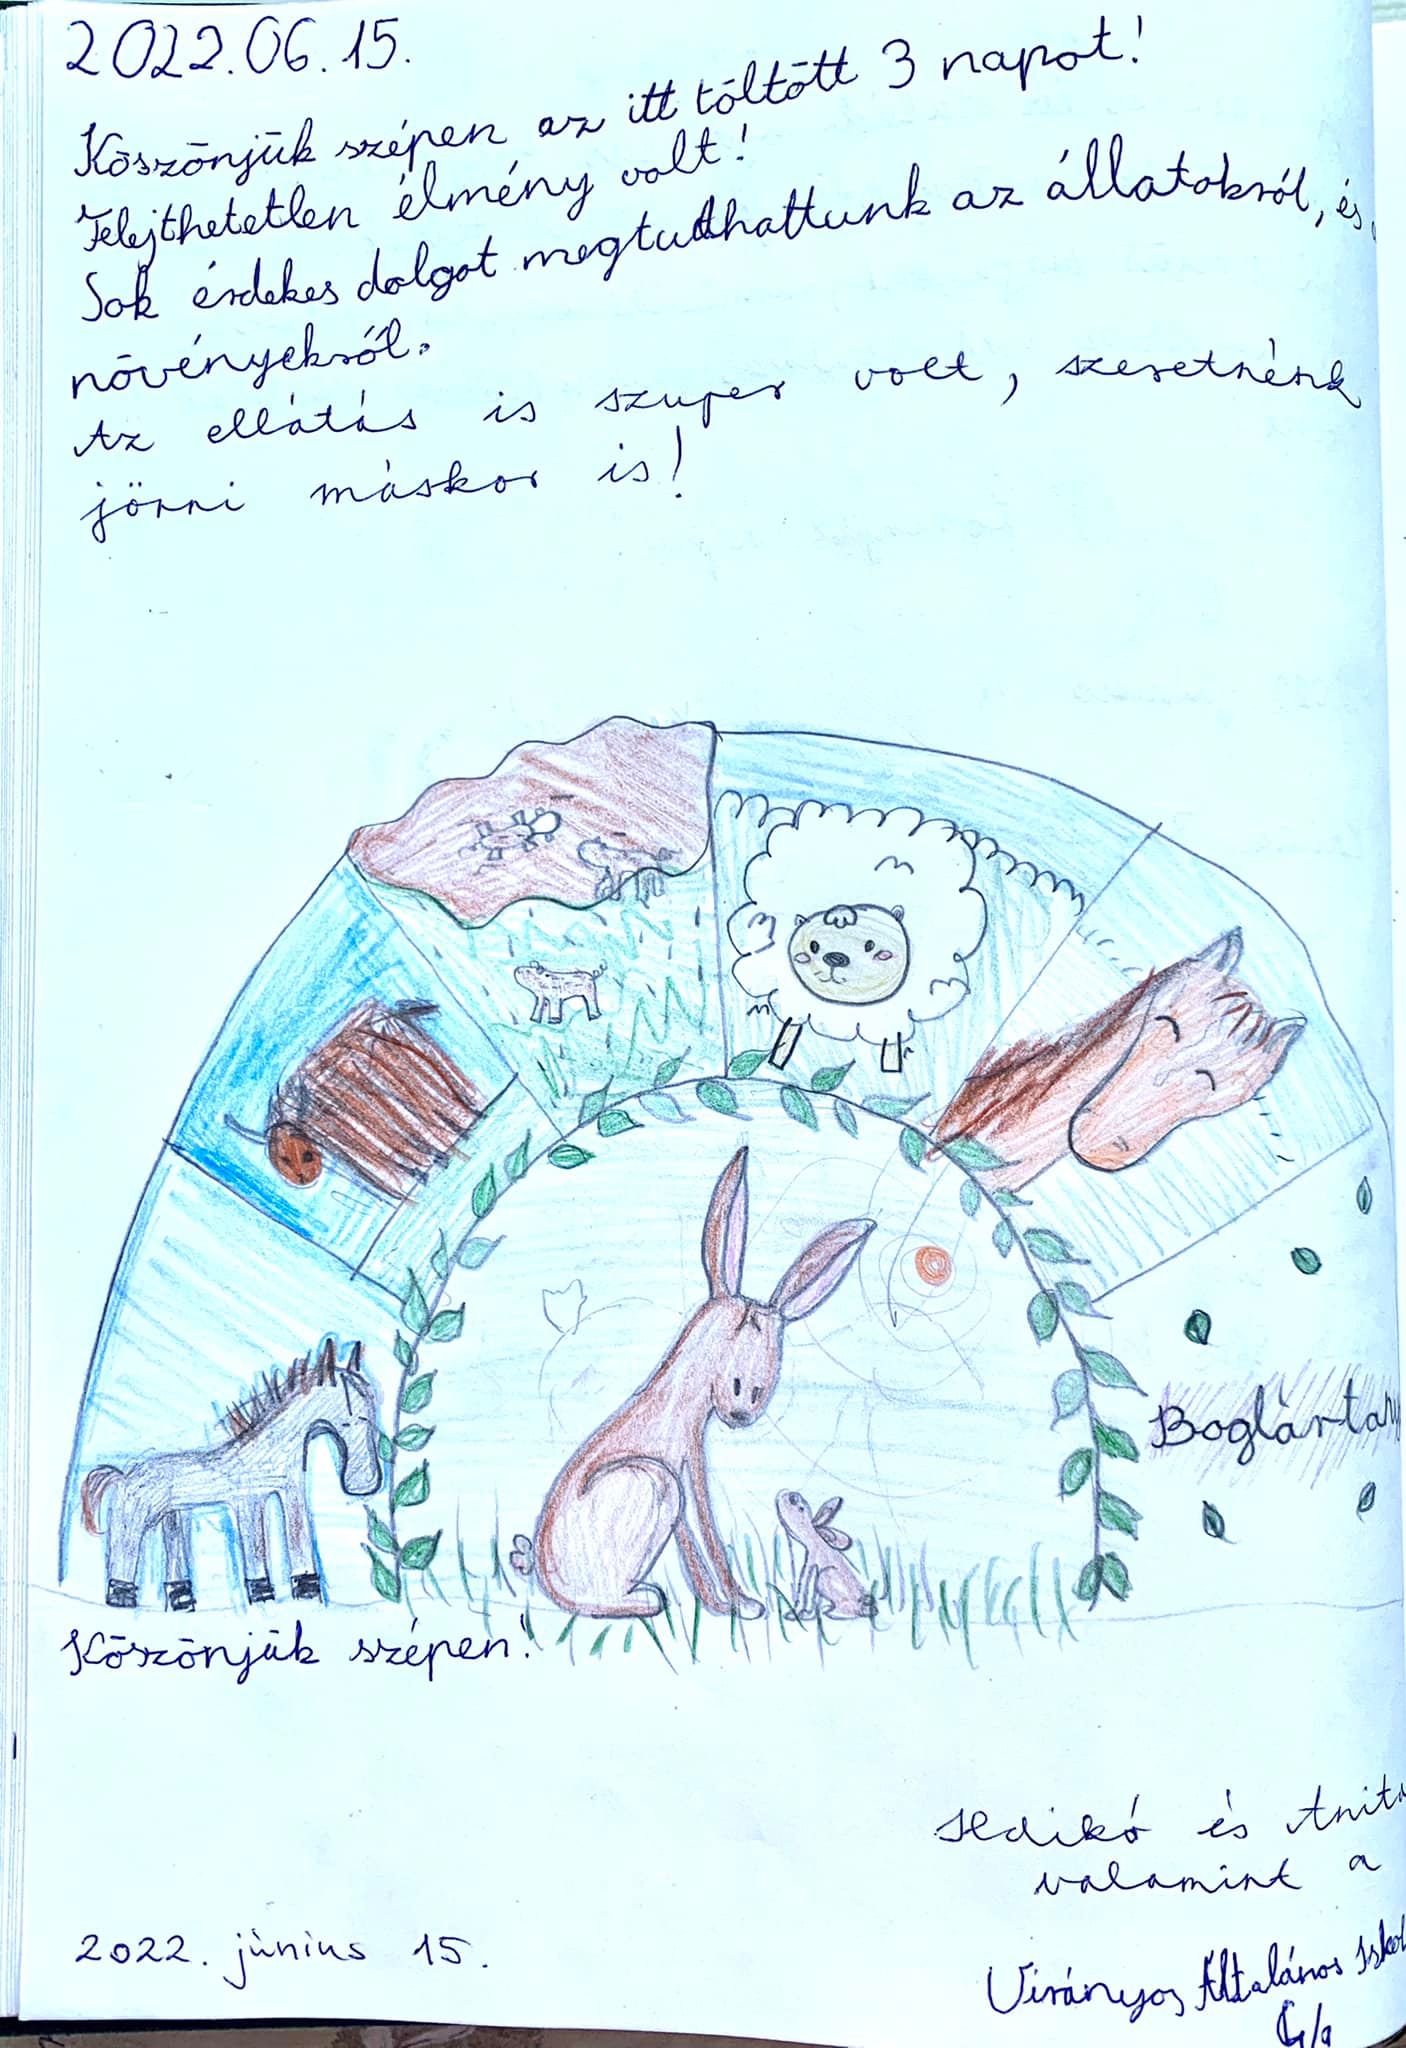 2022.06.15.
Köszönjük szépen az itt töltött 3 napot!
Felejthetetlen élmény volt!
Sok érdekes dolgot megtudhattunk az állatokról, és
növényekről.
Az ellátás is szuper volt, szeretnénk
jönni máskor is!
Boglártany
Köszönjük szépen!
Ildikó és Anita
valamint a
2022. június 15.
Virányos Általános Iskol